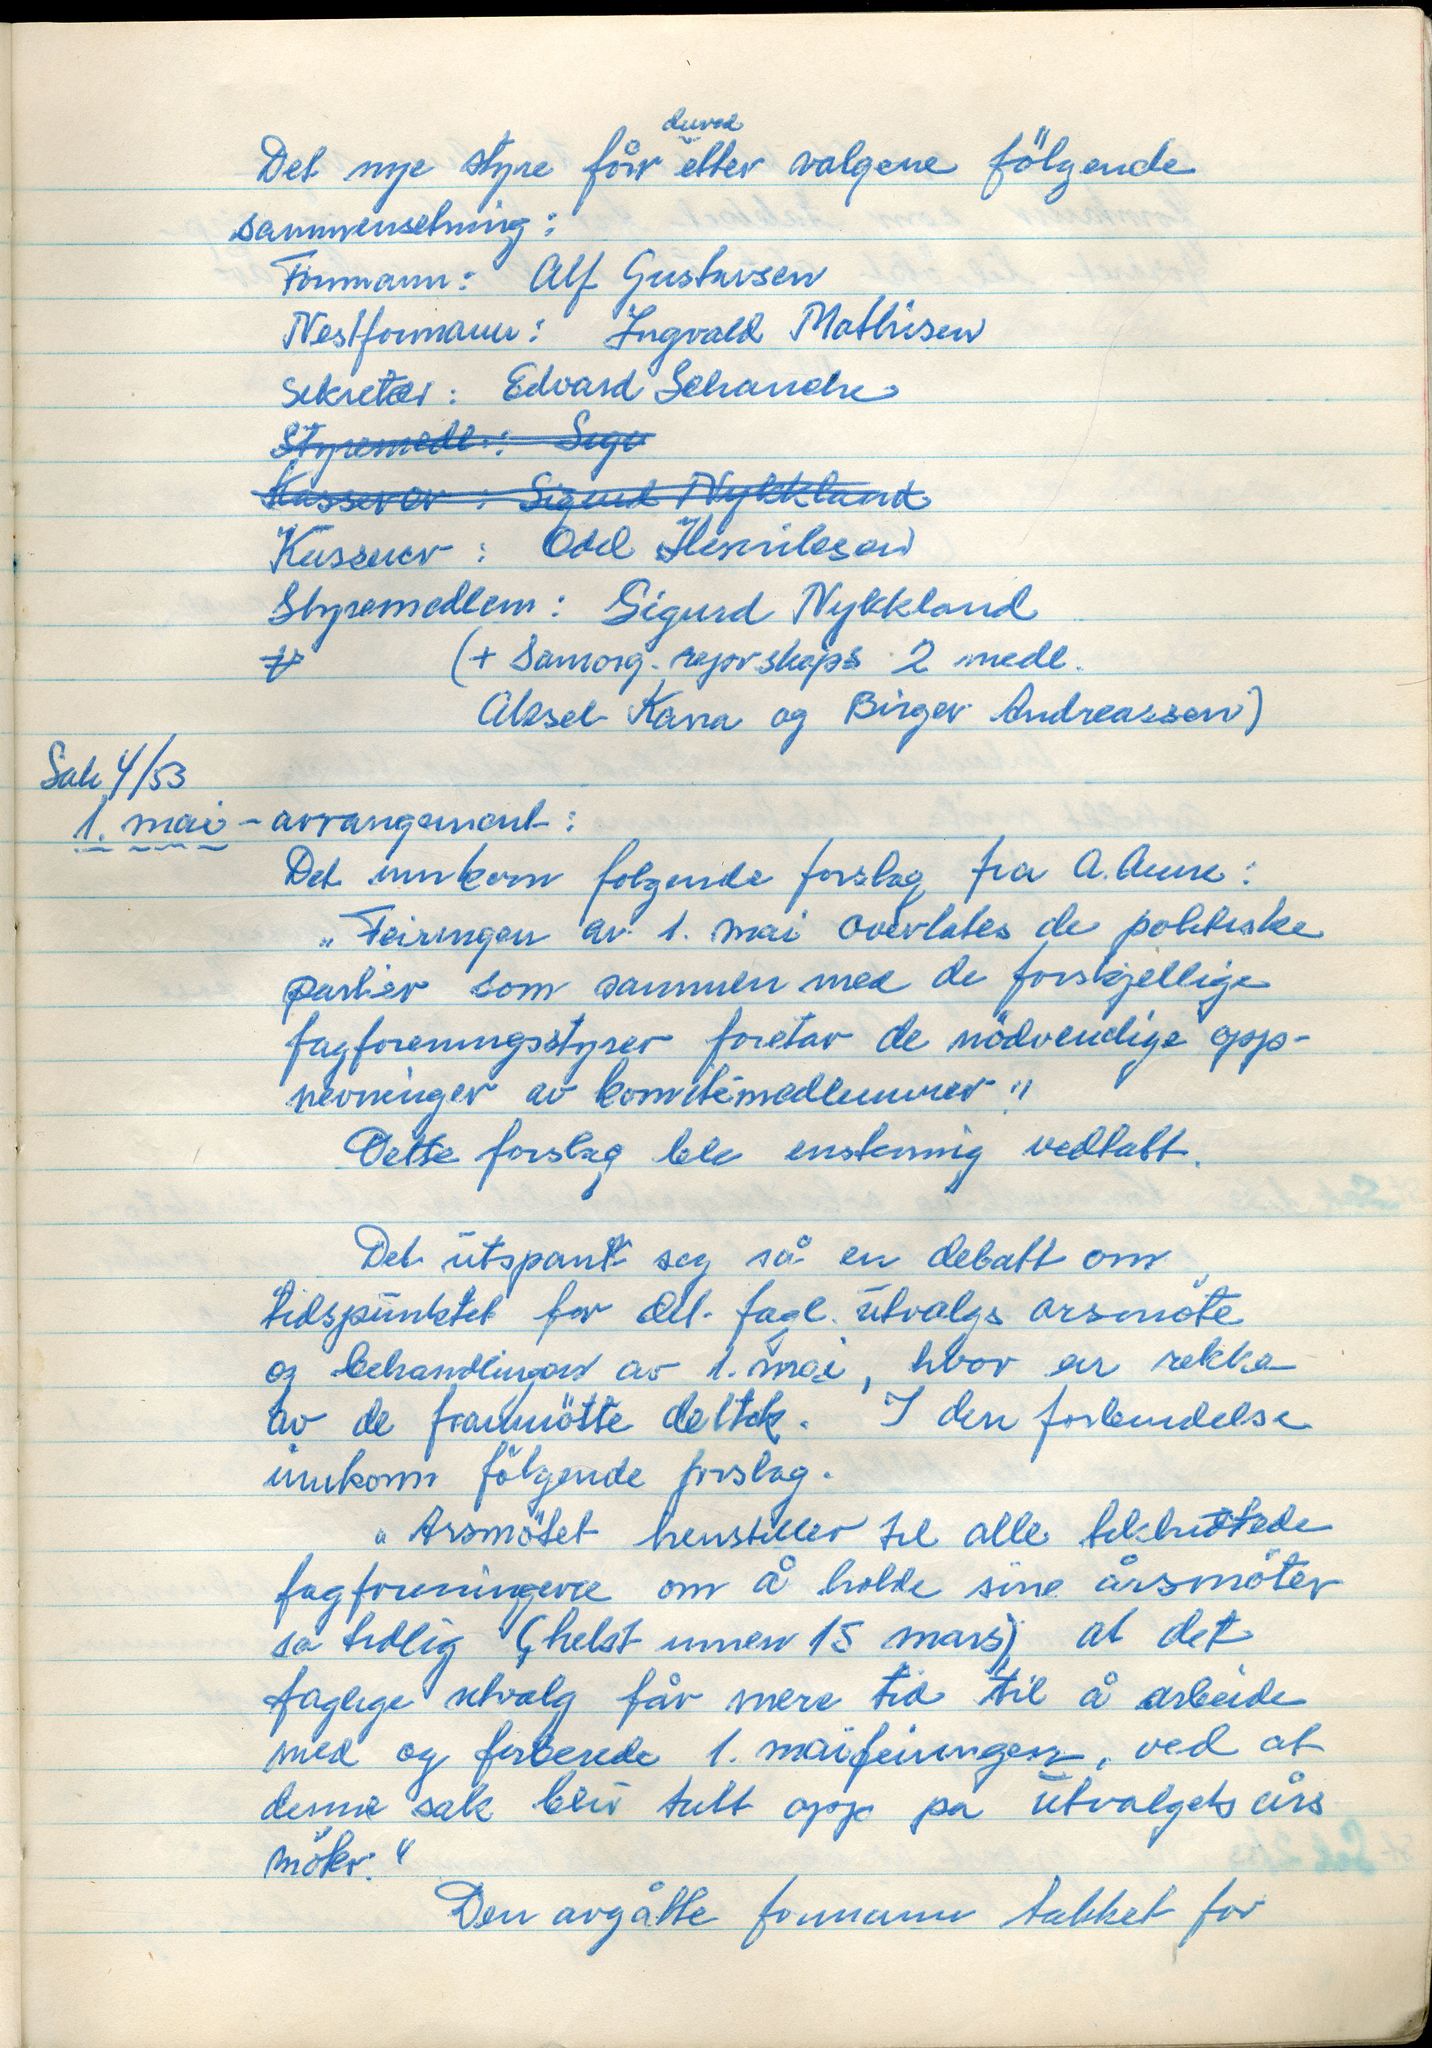 Det nye styre får etter valgene fölgende
sammensetning:
Formann: Alf Gustavsen
Nestformann: Ingvald Mathisen
Sekretær: Edvard Schanche
Styremedl.: Sigu
Kasserer: Sigurd Nykkland
Kasserer: Odd Henriksen
Styremedlem: Sigurd Nykkland
(+ Samorg. repr.skaps 2 medl.
Aksel Kara og Birger Andreassen)
Sak 4/53
1. mai - arrangement:
Det innkom folgende forslag fra A. Aune:
"Feiringen av 1. mai overlates de politiske
partier som sammen med de forskjellige
fagforeningsstyrer foretar de nödvendige opp-
nevninger av komitémedlemmer."
Dette forslag ble enstemmig vedtatt.
Det utspant seg så en debatt om
tidspunktet for det fagl. utvalgs arsmöte
og behandlingen av 1. mai, hvor en rekke
av de frammötte deltok. I den forbindelse
innkom fölgende forslag.
"Arsmötet henstiller til alle tilsluttede
fagforeningene om å holde sine årsmöter
sa tidlig (helst innen 15 mars), at det
faglige utvalg får mere tid til å arbeide
med og forberede 1. maifeiringen, ved at
denne sak blir tatt opp pa utvalgets års
möter."
Den avgåtte formann takket for